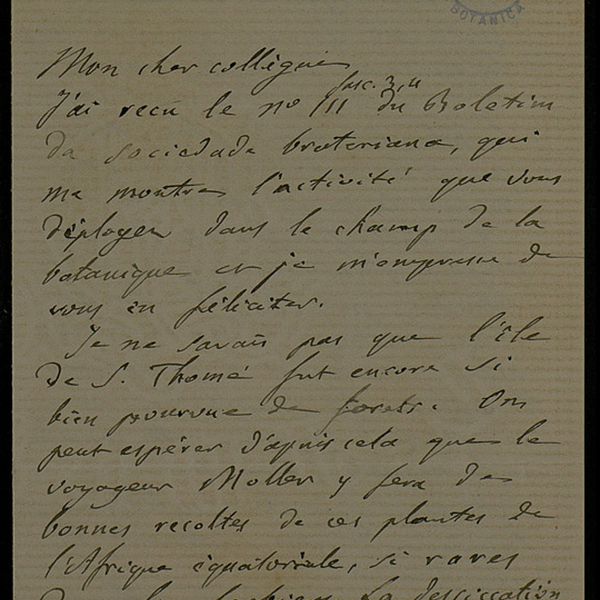 BOTANICA
Mon cher collègue
fasc. 3, 4
J'ai reçu le nº III du Boletim
da sociedade broteriana, qui
me montre l'activité que vous
déployez dans le champ de la
botanique et je m'empresse de
vous en féliciter.
Je ne savais pas que l'île
de S. Thomé fut encore si
bien pourvue de forets. On
peut espérer d'après cela que le
voyageur Moller y fera de
bonnes recoltes de ces plantes de
l'Afrique équatoriale, si rares
La dessiccation